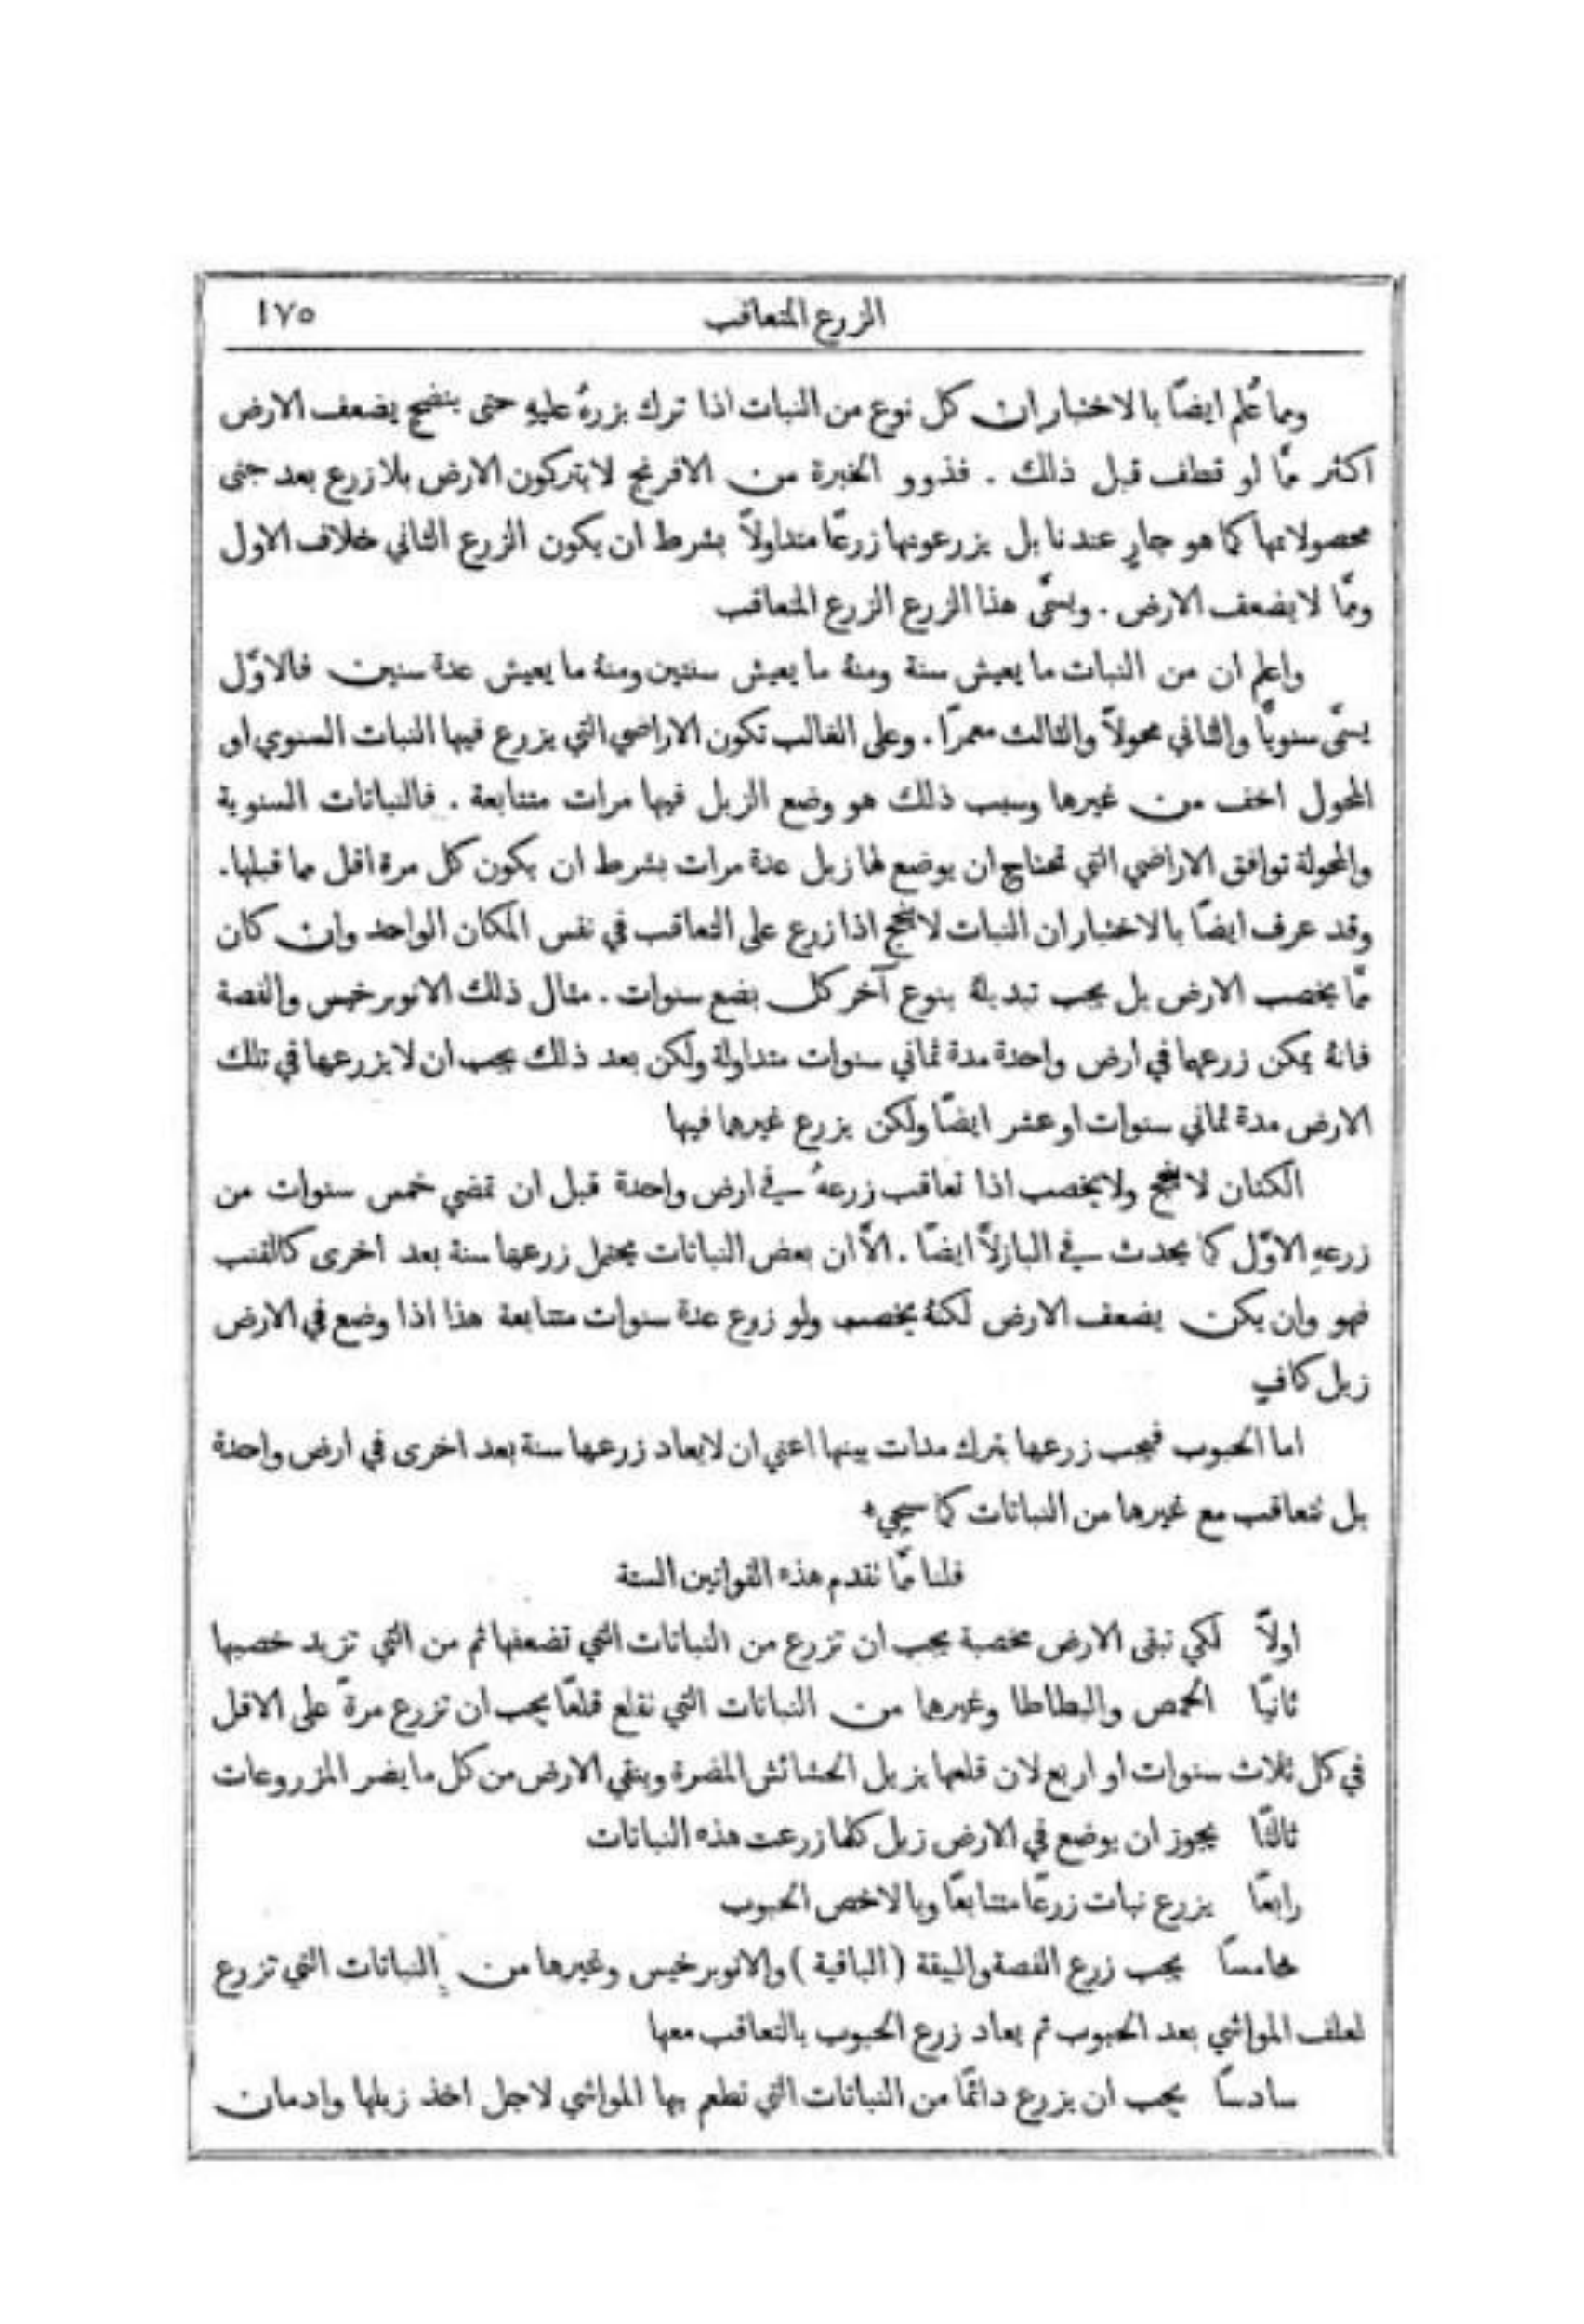 الزرع المتعاقب ١٧٥
ومما عُلم ايضًا بالاختبار ان كل نوع من النبات اذا ترك بزرهُ عليهِ حتى ينضج يضعف الارض
اكثر ممَّا لو قطف قبل ذلك . فذوو الخبرة من الافرنج لا يتركون الارض بلا زرع بعد جنى
محصولاتها كما هو جارٍ عندنا بل يزرعونها زرعًا متداولاً بشرط ان يكون الزرع الثاني خلاف الاول
وممَّا لا يضعف الارض . ويسمَّى هذا الزرع الزرع المتعاقب
واعلم ان من النبات ما يعيش سنة ومنهُ ما يعيش سنتين ومنهُ ما يعيش عدة سنين فالاوَّل
يسمَّى سنويًّا والثاني محولاً والثالث معمرًا . وعلى الغالب تكون الاراضي التي يزرع فيها النبات السنوي او
المحول اخف من غيرها وسبب ذلك هو وضع الزبل فيها مرات متتابعة . فالنباتات السنوية
والمحولة توافق الاراضي التي تحتاج ان يوضع لها زبل عدة مرات بشرط ان يكون كل مرة اقل مما قبلها .
وقد عرف ايضًا بالاختبار ان النبات لا ينجح اذا زرع على التعاقب في نفس المكان الواحد وان كان
ممَّا يخصب الارض بل يجب تبديلهُ بنوع آخر كل بضع سنوات . مثال ذلك الانوبرخيس والفصة
فانهُ يمكن زرعهما في ارض واحدة مدة ثماني سنوات متداولة ولكن بعد ذلك يجب ان لا يزرعها في تلك
الارض مدة ثماني سنوات او عشر ايضًا ولكن يزرع غيرهما فيها
الكتان لا ينجح ولا يخصب اذا تعاقب زرعهُ في ارض واحدة قبل ان تمضي خمس سنوات من
زرعهِ الاوَّل كما يحدث في البازلاَّ ايضًا . الاَّ ان بعض النباتات يحتمل زرعها سنة بعد اخرى كالقنب
فهو وان يكن يضعف الارض لكنهُ يخصب ولو زرع عدة سنوات متتابعة هذا اذا وضع في الارض
زبل كافٍ
اما الحبوب فيجب زرعها بترك مدات بينها اعني ان لا يعاد زرعها سنة بعد اخرى في ارض واحدة
بل تتعاقب مع غيرها من النباتات كما سيجيء
قلنا ممَّا تقدم هذه القوانين الستة
اولاً لكي تبقى الارض مخصبة يجب ان تزرع من النباتات التي تضعفها ثم من التي تزيد خصبها
ثانيًا الحمص والبطاطا وغيرها من النباتات التي تقلع قلعًا يجب ان تزرع مرةً على الاقل
في كل ثلاث سنوات او اربع لان قلعها يزيل الحشائش المضرة وينقي الارض من كل ما يضر المزروعات
ثالثًا يجوز ان يوضع في الارض زبل كلما زرعت هذه النباتات
رابعًا يزرع نبات زرعًا متتابعًا وبالاخص الحبوب
خامسًا يجب زرع الفصة والبيقة (الباقية) والانوبرخيس وغيرها من النباتات التي تزرع
لعلف المواشي بعد الحبوب ثم يعاد زرع الحبوب بالتعاقب معها
سادسًا يجب ان يزرع دائمًا من النباتات التي تطعم بها المواشي لاجل اخذ زبلها وادمان